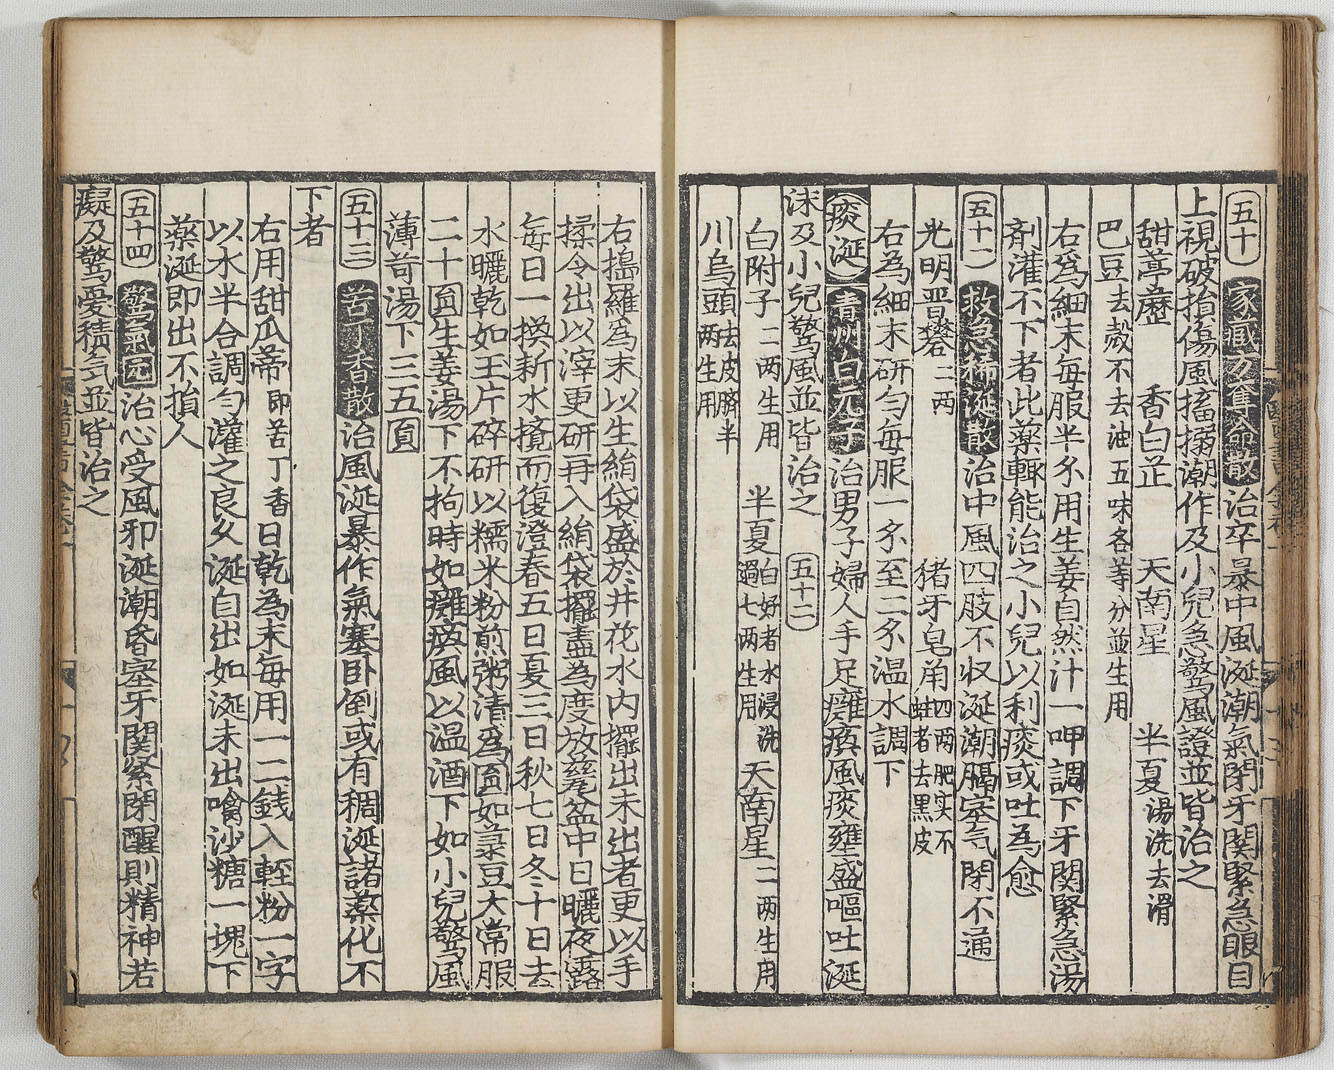 五十 家藏方奪命散 治卒暴中風涎潮氣閉牙関緊急眼目
上視破損傷風搐搦潮作及小兒急驚風證並皆治之
甜葶藶 香白芷 天南星 半夏湯洗去滑
巴豆去殼不去油五味各等分並生用
右爲細末每服半錢用生姜自然汁一呷調下牙関緊急湯
劑灌不下者此藥輙能治之小兒以利痰或吐爲愈
五十一 救急稀涎散 治中風四肢不収涎潮膈塞氣閉不通
光明晋礬二两 猪牙皂角四两肥实不蛀者去黑皮
右為細末研匀每服一錢至二錢温水調下
痰涎 青州白元子 治男子婦人手足癱瘓風痰壅盛嘔吐涎
沫及小兒驚風並皆治之 五十二
白附子二两生用 半夏白好者水浸洗過七两生用 天南星二两生用
川烏頭去皮臍半两生用
右搗羅爲末以生絹袋盛於井花水内擺出未出者更以手
揉令出以滓更研再入絹袋擺盡為度放甆盆中日曬夜露
每日一換新水攪而復澄春五日夏三日秋七日冬十日去
水曬乾如玉片碎研以糯米粉煎粥清爲圎如菉豆大常服
二十圎生姜湯下不拘時如癱瘓風以温酒下如小兒驚風
薄荷湯下三五圎
五十三 苦丁香散 治風涎暴作氣塞卧倒或有稠涎諸藥化不
下者
右用甜瓜蒂即苦丁香日乾為末每用一二錢入輕粉一字
以水半合調匀灌之良久涎自出如涎未出噙沙糖一塊下
藥涎即出不損人
五十四 驚氣圎 治心受風邪涎潮昏塞牙関緊閉醒則精神若
癡及驚憂積气並皆治之